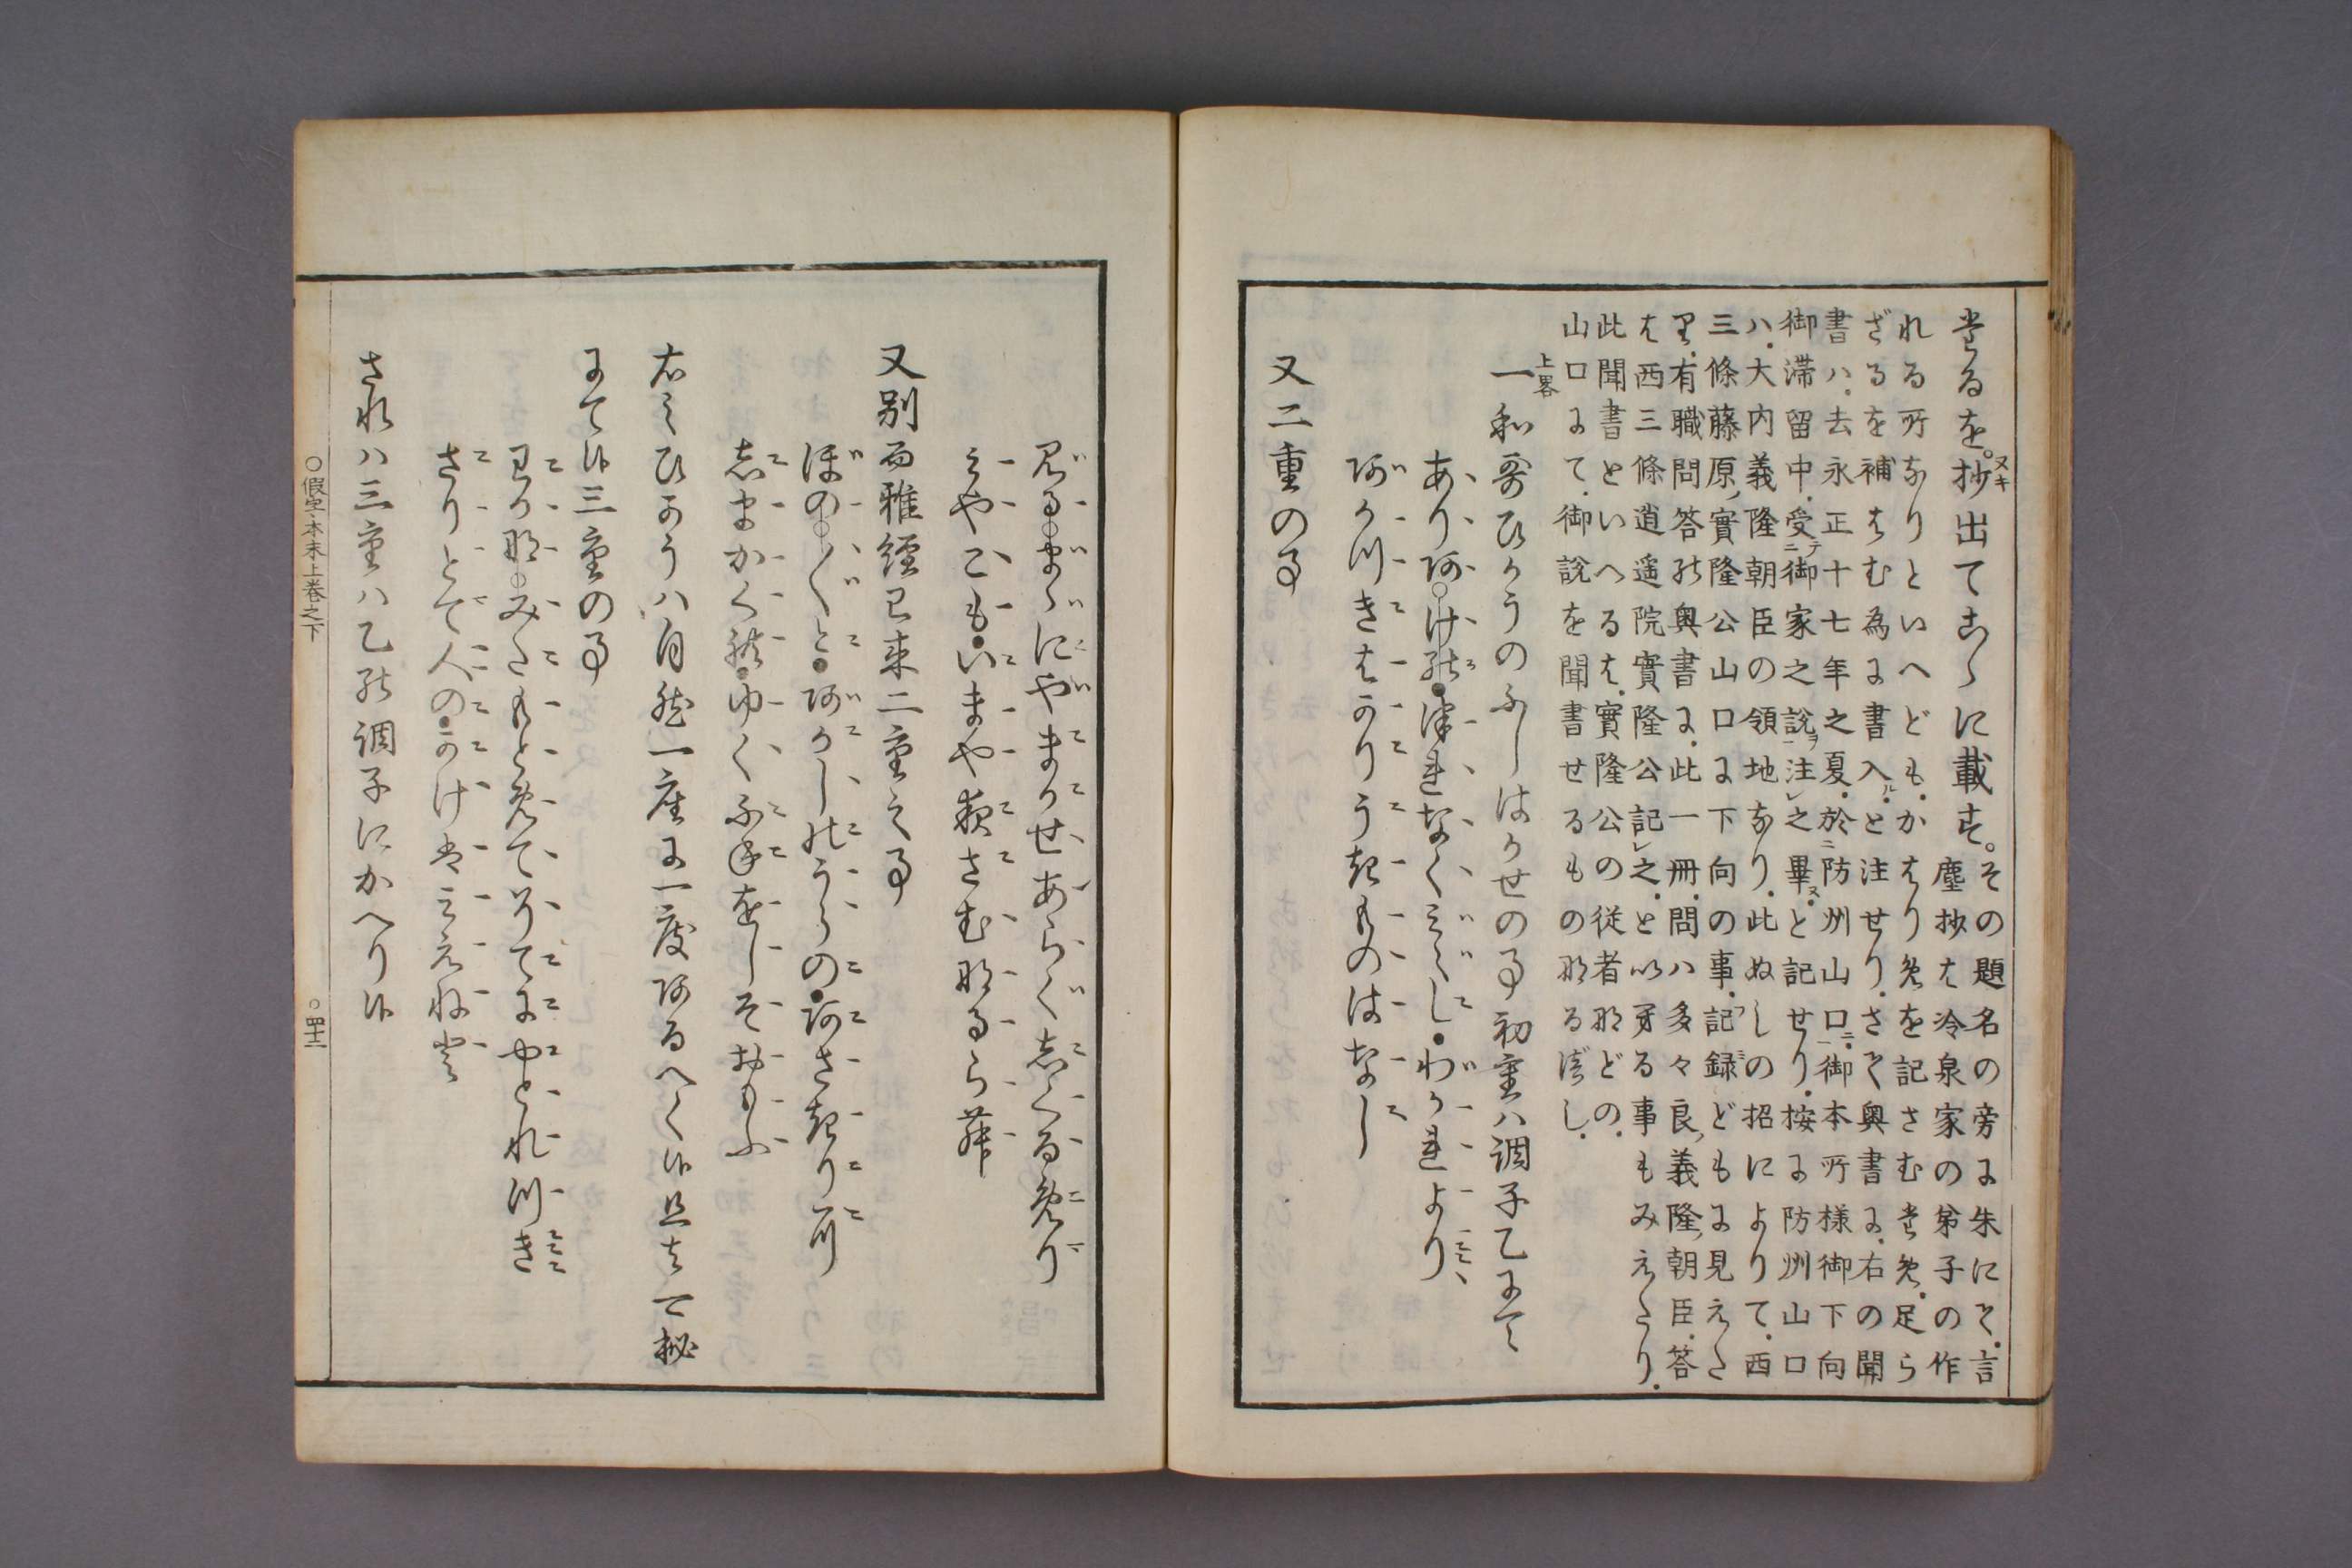 たるを。抄出てこゝに載す。その題名の旁に朱にて。言
塵抄は冷泉家の弟子の作
れる所なりといへども。かはり免を記さむ為。足ら
ざるを補はむ為に書入ル。と注せり。さて奥書に。右の聞
書ハ。去永正十七年之夏。於ニ防州山口ニ。御本所様御下向
御滞留中。受ニテ御家之説ヲ注レ之畢ヌ。と記せり。按に防州山口
ハ。大内義隆朝臣の領地なり。此ぬしの招によりて。西
三條藤原ノ實隆公山口に下向の事。記録どもに見えた
り。有職問答の奥書に。此一冊。問ハ多々良ノ義隆ノ朝臣。答
は西三條逍遥院實隆公記レ之。と以ある事もみえたり。
此聞書といへるは。實隆公の従者などの。
山口にて。御説を聞書せるものなるべし。
上畧
一和哥ひかうのふしはかせの事初重ハ調子乙にて
あり阿けの津れなくみえし。わかれより
阿か川きはかりうきものはなし
又二重の事
みるまゝにやまかせあらくしくるめり
みやこもいまや夜さむなるらむ
又別而雅経已来二重之事
ほの〳〵とあかしのうらのあさきり川
しまかくれゆくふねをしそおもふ
右之ひかうハ自然一座に一度あるへく候且は可秘
にて候三重の事
わか那みたもとめて行てにやとれ川き
さりとて人のかけはみえねと
されハ三重ハ乙の調子にかへり候
○假字本末上巻之下
○四十二